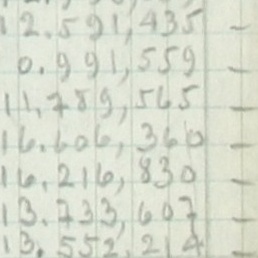 12.591,435 –
0.991,559 –
11.789,565 –
16.606,360 –
16.216,830 –
13.733,607 –
13.552,214 –